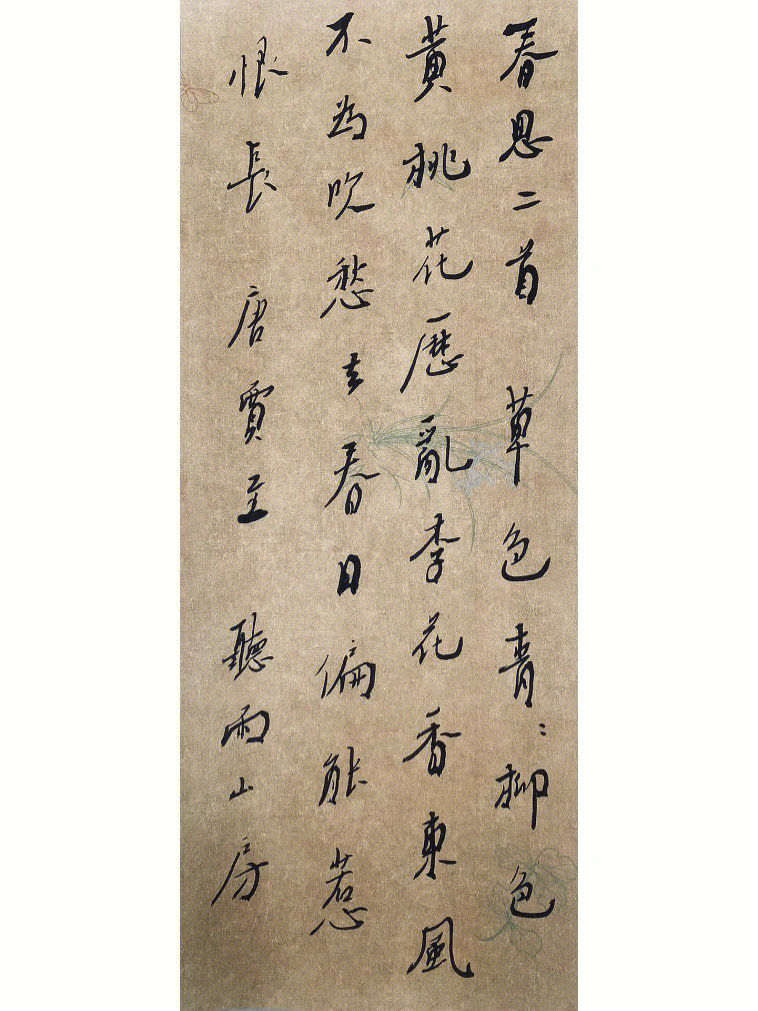 春思二首 草色青〻柳色
黄桃花歷亂李花香東風
不為吹愁去春日偏能惹
恨長 唐賈至 聽雨山房